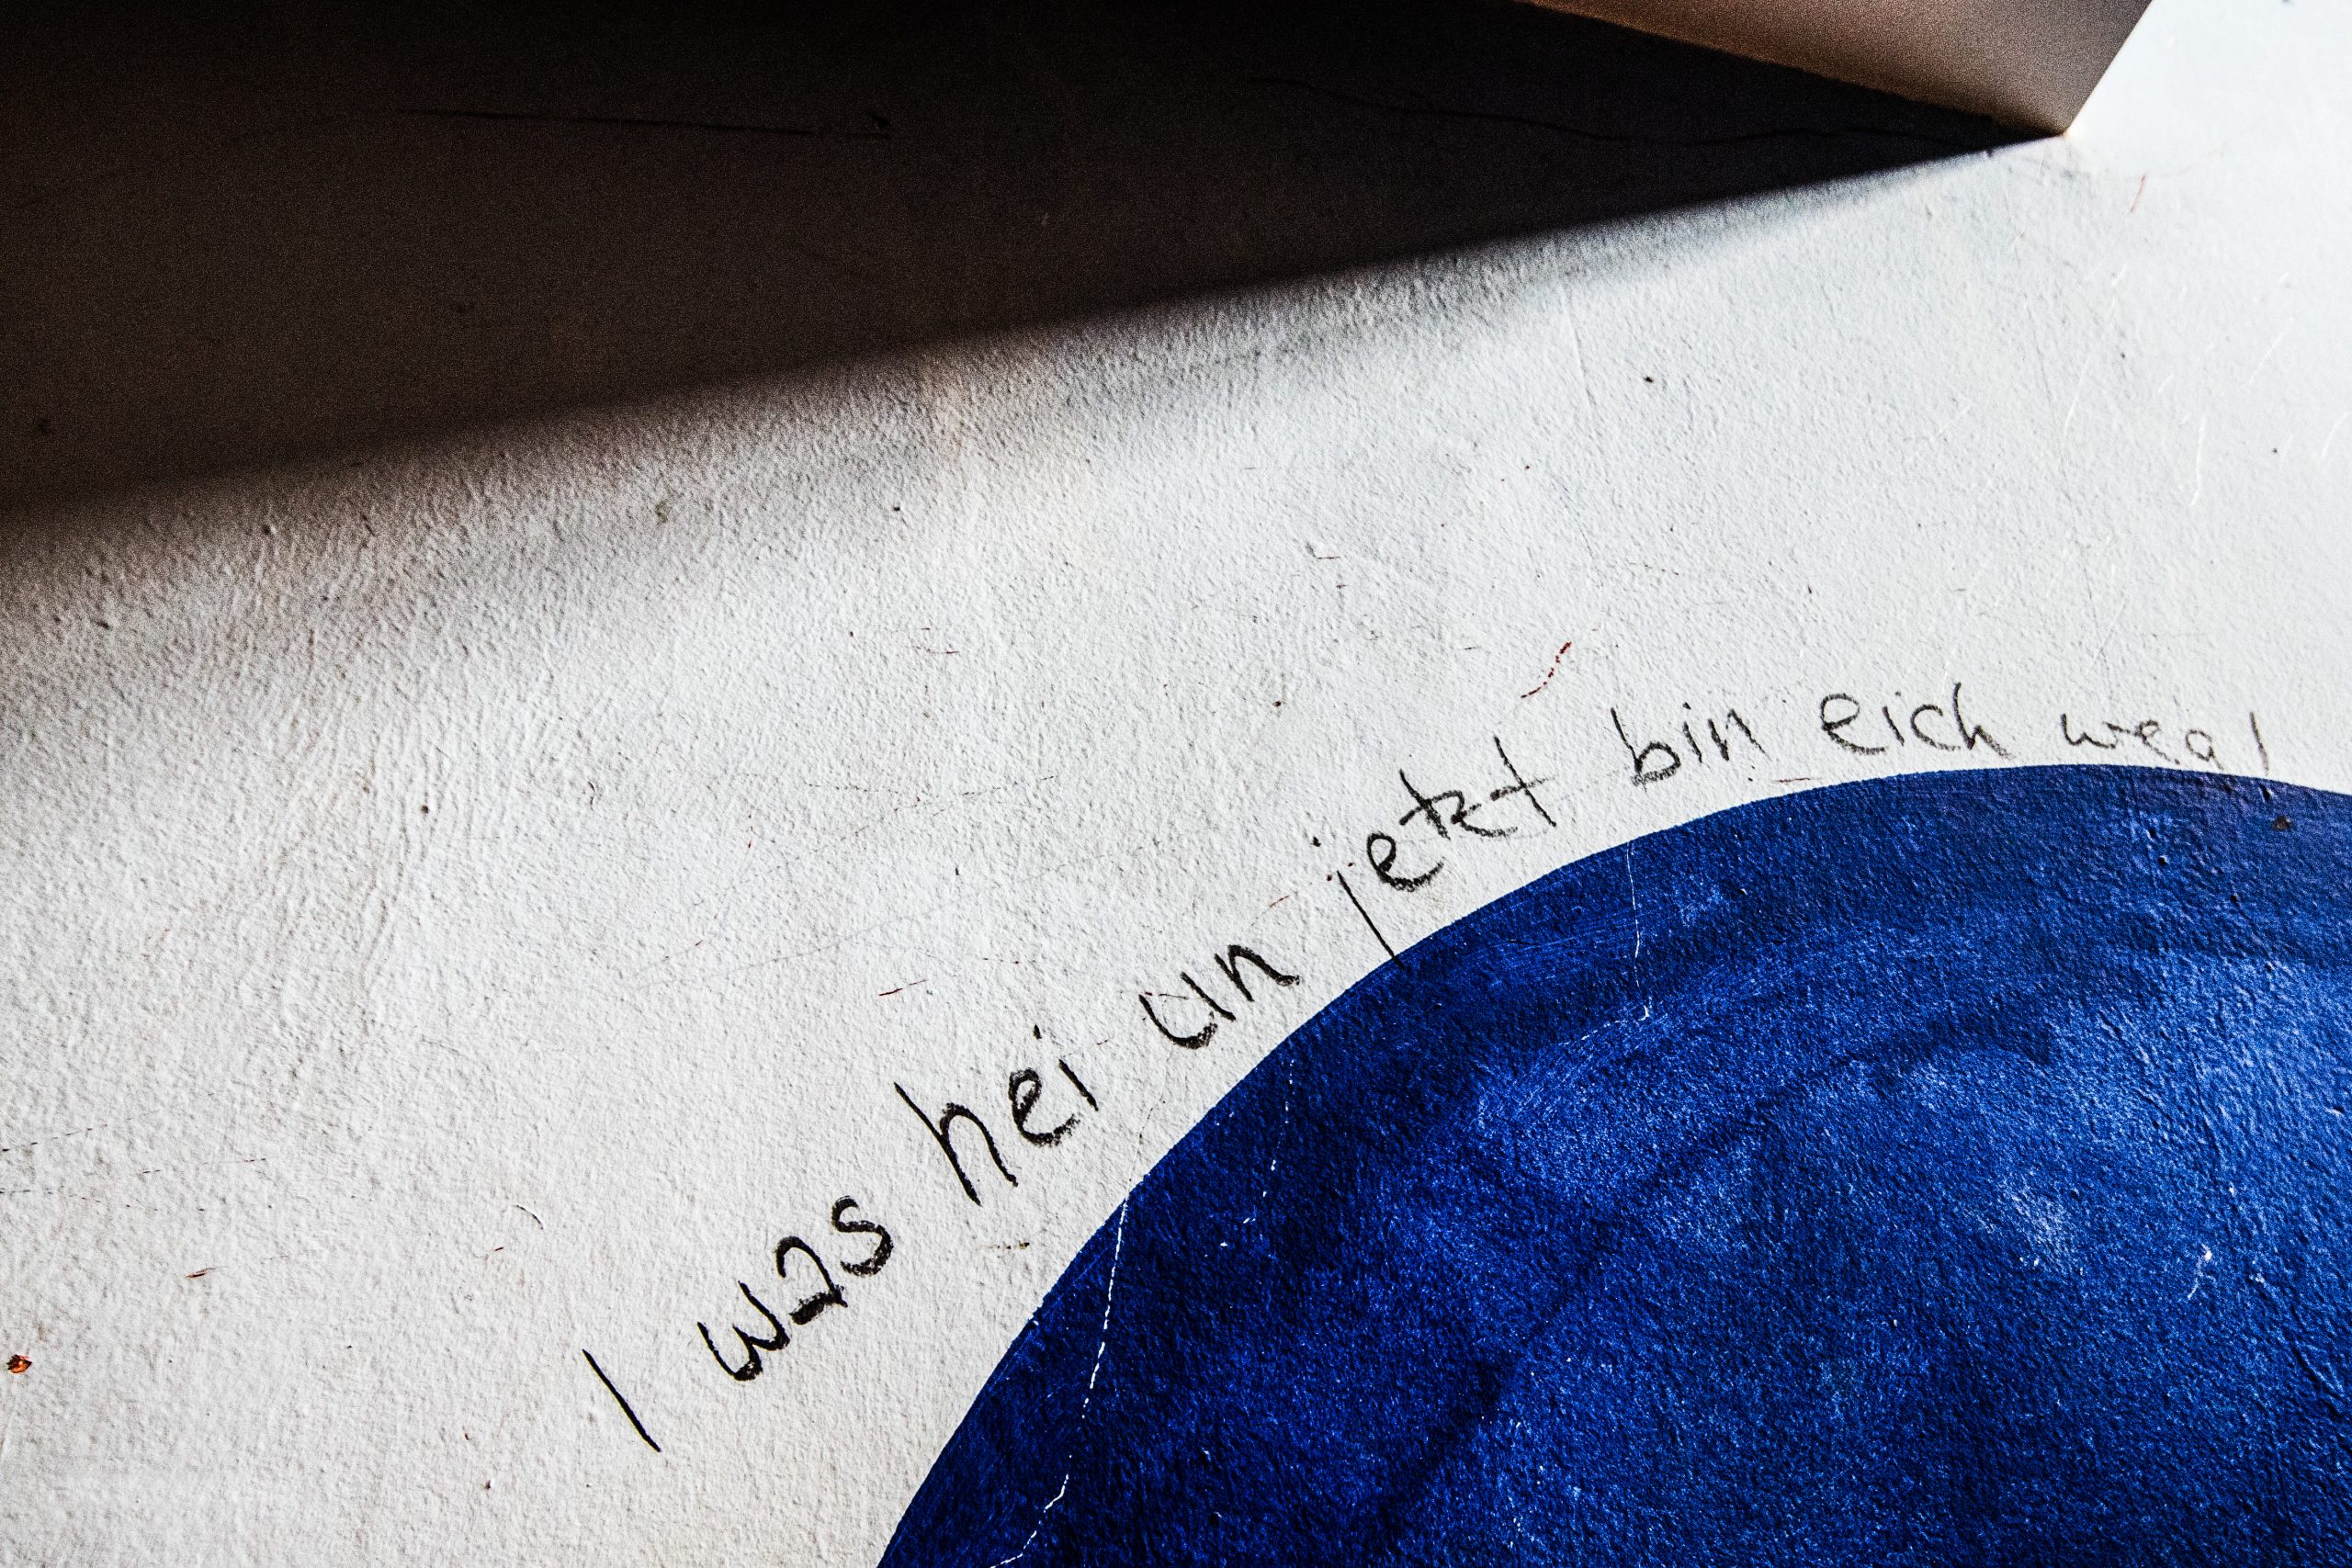 I was hei un jetzt bin eich weg!